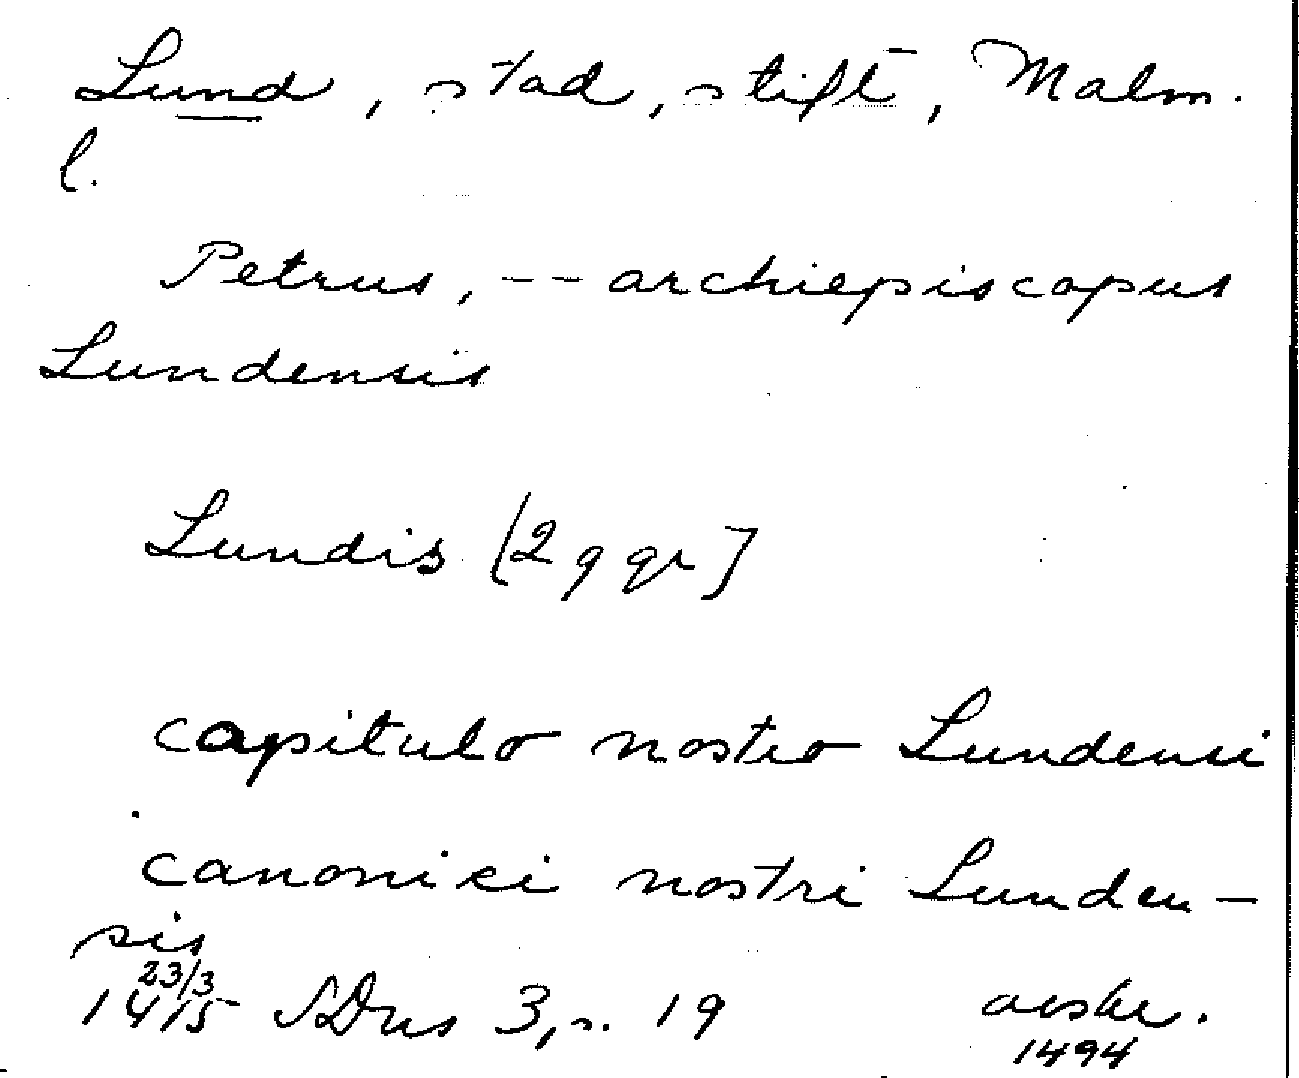 Lund, stad, stift, Malm.
l.
Petrus, -- archiepiscopus
Lundensis
Lundis [2 g gr]
capitulo nostro Lundensi
canonici nostri Lunden-
sis
23/3
1415 SDns 3, s. 19
avskr.
1494